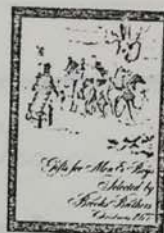 Gifts for Men & Boys
Selected by
Brooks Brothers
Christmas